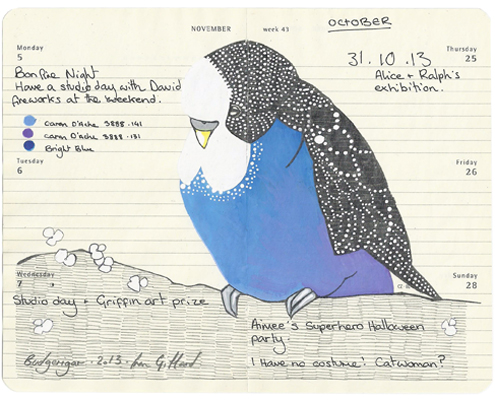 NOVEMBER week 43
OCTOBER
Monday
5
Bonfire Night
Have a studio day with David
fireworks at the weekend.
Caran D'Ache 3888.141
Caran D'Ache 3888.131
Bright Blue
Tuesday
6
Wednesday
7
Studio day + Griffin art prize
Budgerigar . 2013
31. 10 .13
Thursday
25
Alice + Ralph's
exhibition.
Friday
26
Sunday
28
Aimee's Superhero Halloween
party.
I have no costume! Catwoman?